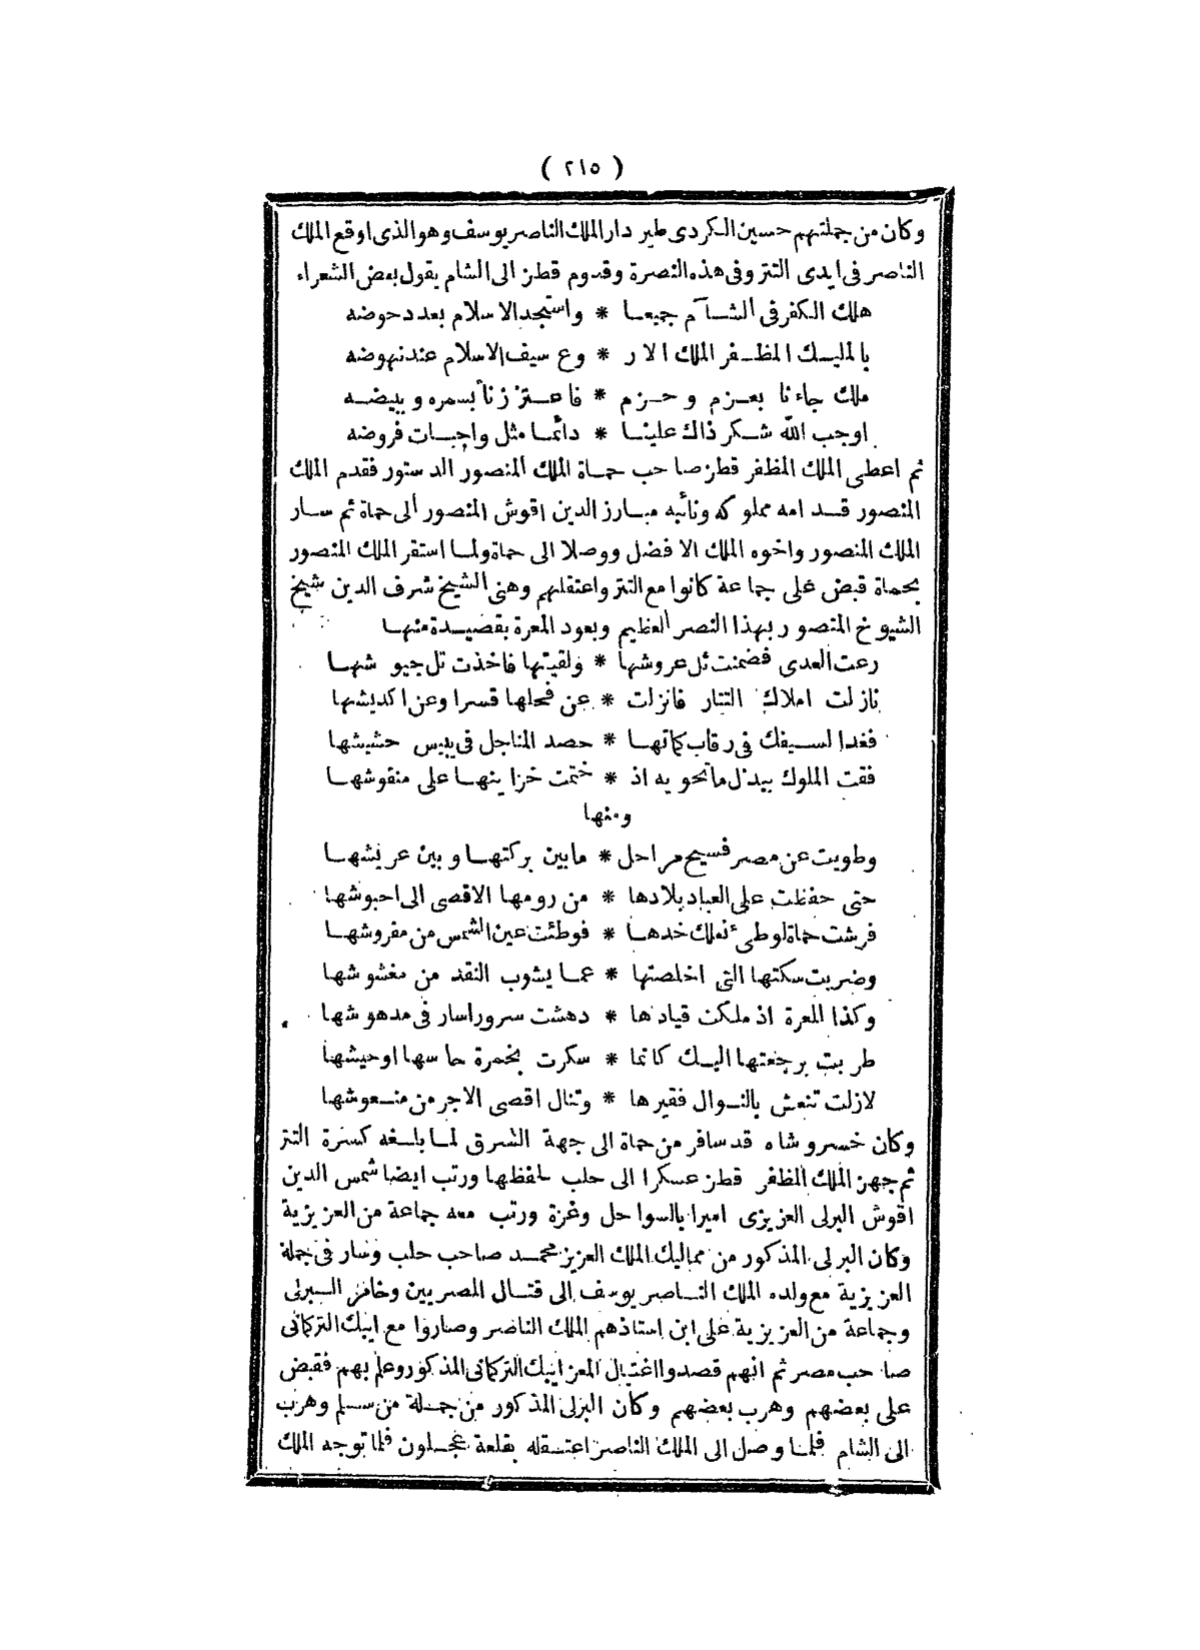 ( ٢١٥ )
وكان من جملتهم حسين الكردى طبر دار الملك الناصر يوسف وهو الذى اوقع الملك
الناصر فى ايدى التتر وفى هذه النصرة وقدوم قطز الى الشام يقول بعض الشعراء
هلك الكفر فى الشآم جميعا * واستجد الاسلام بعد دحوضه
بالمليك المظفر الملك الار * وع سيف الاسلام عند نهوضه
ملك جاءنا بعزم وحزم * فاعتززنا بسمره وببيضه
اوجب الله شكر ذاك علينا * دائما مثل واجبات فروضه
ثم اعطى الملك المظفر قطز صاحب حماة الملك المنصور الدستور فقدم الملك
المنصور قدامه مملوكه ونائبه مبارز الدين اقوش المنصور الى حماة ثم سار
الملك المنصور واخوه الملك الافضل ووصلا الى حماة ولما استقر الملك المنصور
بحماة قبض على جماعة كانوا مع التتر واعتقلهم وهنى الشيخ شرف الدين شيخ
الشيوخ المنصور بهذا النصر العظيم وبعود المعرة بقصيدة منها
رعت العدى فضمنت ثل عروشها * ولقيتها فاخذت تل جيوشها
نازلت املاك التتار فانزلت * عن فحلها قسرا وعن اكديشها
فغدا لسيفك فى رقاب كماتها * حصد المناجل فى يبيس حشيشها
فقت الملوك ببذل ما تحويه اذ * ختمت خزاينها على منقوشها
ومنها
وطويت عن مصر فسيح مراحل * مابين بركتها وبين عريشها
حتى حفظت على العباد بلادها * من رومها الاقصى الى احبوشها
فرشت حماة لوطىء نعلك خدها * فوطئت عين الشمس من مفروشها
وضربت سكتها التى اخلصتها * عما يشوب النقد من مغشوشها
وكذا المعرة اذ ملكت قيادها * دهشت سرورا سار فى مدهوشها
طربت برجعتها اليك كانما * سكرت بخمرة حاسها اوحيشها
لازلت تنعش بالنوال فقيرها * وتنال اقصى الاجر من منعوشها
وكان خسروشاه قد سافر من حماة الى جهة الشرق لما بلغه كسرة التتر
ثم جهز الملك المظفر قطز عسكرا الى حلب لحفظها ورتب ايضا شمس الدين
اقوش البرلى العزيزى اميرا بالسواحل وغزة ورتب معه جماعة من العزيزية
وكان البرلى المذكور من مماليك الملك العزيز محمد صاحب حلب وسار فى جملة
العزيزية مع ولده الملك الناصر يوسف الى قتال المصريين وخامر البرلى
وجماعة من العزيزية على ابن استاذهم الملك الناصر وصاروا مع ايبك التركمانى
صاحب مصر ثم انهم قصدوا اغتيال المعز ايبك التركمانى المذكور وعلم بهم فقبض
على بعضهم وهرب بعضهم وكان البرلى المذكور من جملة من سلم وهرب
الى الشام فلما وصل الى الملك الناصر اعتقله بقلعة عجلون فلما توجه الملك